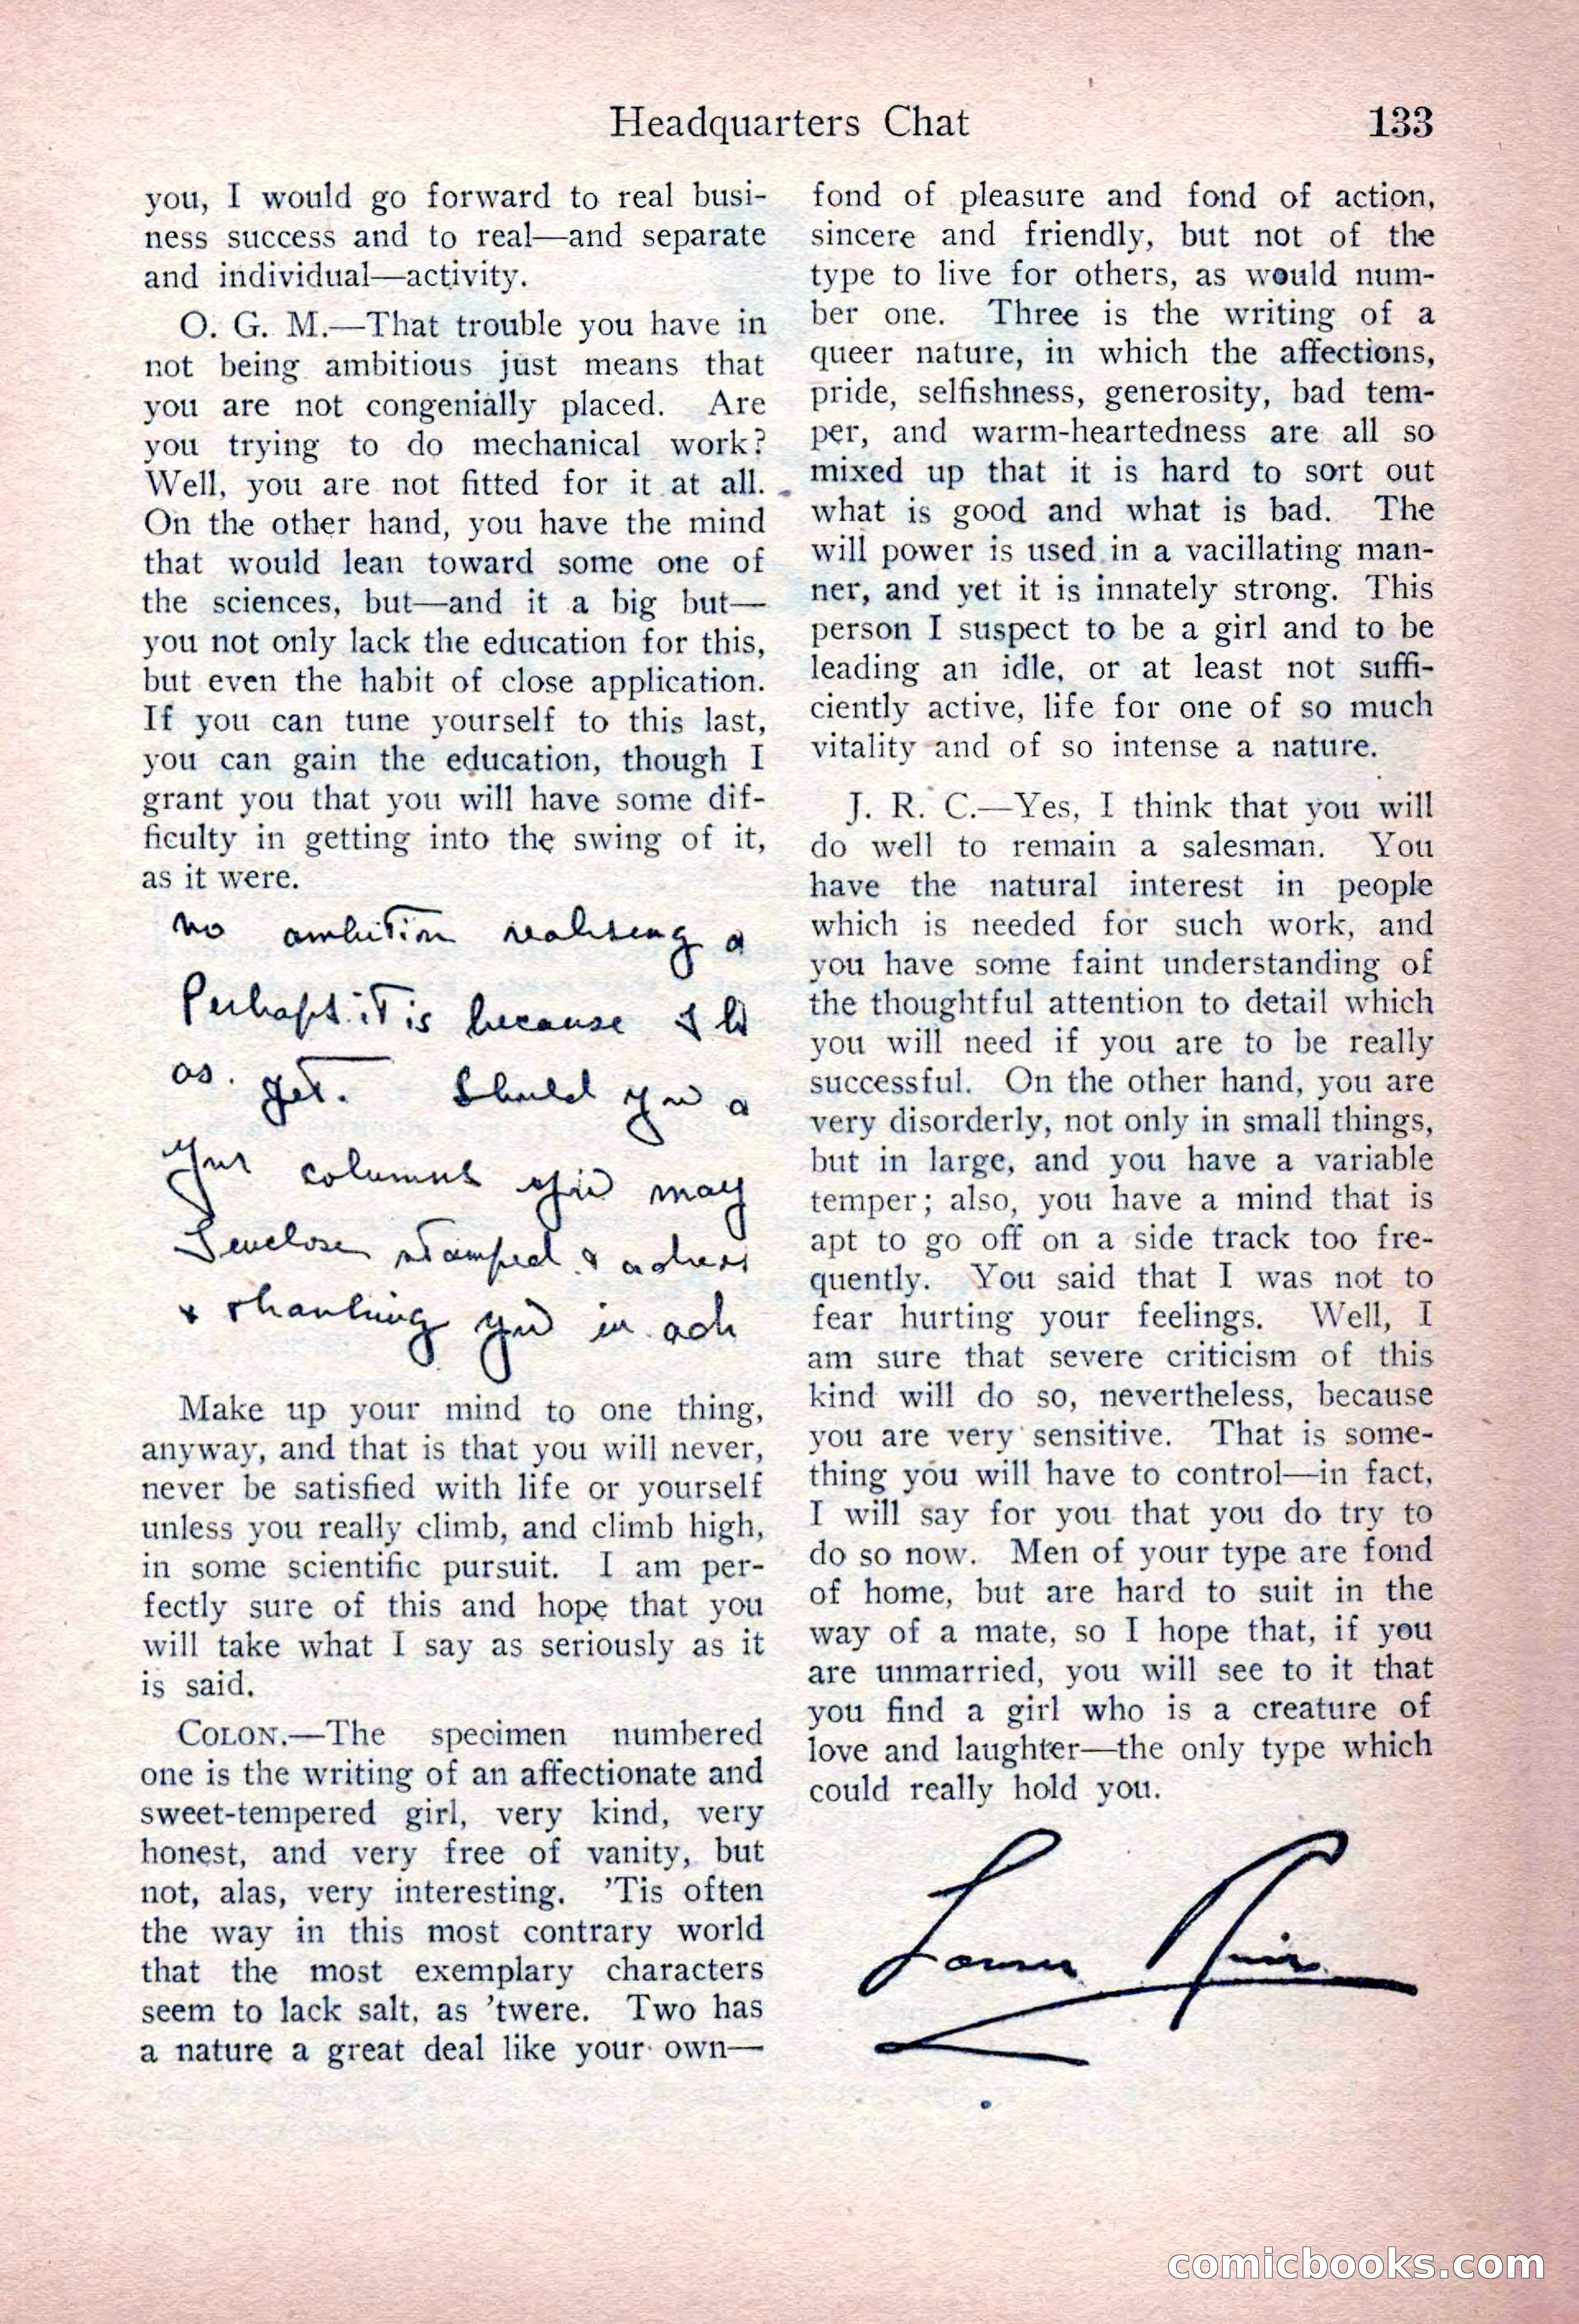 Headquarters Chat 133
you, I would go forward to real busi-
ness success and to real—and separate
and individual—activity.
O. G. M.—That trouble you have in
not being ambitious just means that
you are not congenially placed. Are
you trying to do mechanical work?
Well, you are not fitted for it at all.
On the other hand, you have the mind
that would lean toward some one of
the sciences, but—and it a big but—
you not only lack the education for this,
but even the habit of close application.
If you can tune yourself to this last,
you can gain the education, though I
grant you that you will have some dif-
ficulty in getting into the swing of it,
as it were.
no ambition realising a
Perhaps it is because I
as yet. Should you a
your columns you may
I enclose stamped & adress
& thanking you in
Make up your mind to one thing,
anyway, and that is that you will never,
never be satisfied with life or yourself
unless you really climb, and climb high,
in some scientific pursuit. I am per-
fectly sure of this and hope that you
will take what I say as seriously as it
is said.
COLON.—The specimen numbered
one is the writing of an affectionate and
sweet-tempered girl, very kind, very
honest, and very free of vanity, but
not, alas, very interesting. 'Tis often
the way in this most contrary world
that the most exemplary characters
seem to lack salt, as 'twere. Two has
a nature a great deal like your own—
fond of pleasure and fond of action,
sincere and friendly, but not of the
type to live for others, as would num-
ber one. Three is the writing of a
queer nature, in which the affections,
pride, selfishness, generosity, bad tem-
per, and warm-heartedness are all so
mixed up that it is hard to sort out
what is good and what is bad. The
will power is used in a vacillating man-
ner, and yet it is innately strong. This
person I suspect to be a girl and to be
leading an idle, or at least not suffi-
ciently active, life for one of so much
vitality and of so intense a nature.
J. R. C.—Yes, I think that you will
do well to remain a salesman. You
have the natural interest in people
which is needed for such work, and
you have some faint understanding of
the thoughtful attention to detail which
you will need if you are to be really
successful. On the other hand, you are
very disorderly, not only in small things,
but in large, and you have a variable
temper; also, you have a mind that is
apt to go off on a side track too fre-
quently. You said that I was not to
fear hurting your feelings. Well, I
am sure that severe criticism of this
kind will do so, nevertheless, because
you are very sensitive. That is some-
thing you will have to control—in fact,
I will say for you that you do try to
do so now. Men of your type are fond
of home, but are hard to suit in the
way of a mate, so I hope that, if you
are unmarried, you will see to it that
you find a girl who is a creature of
love and laughter—the only type which
could really hold you.
comicbooks.com